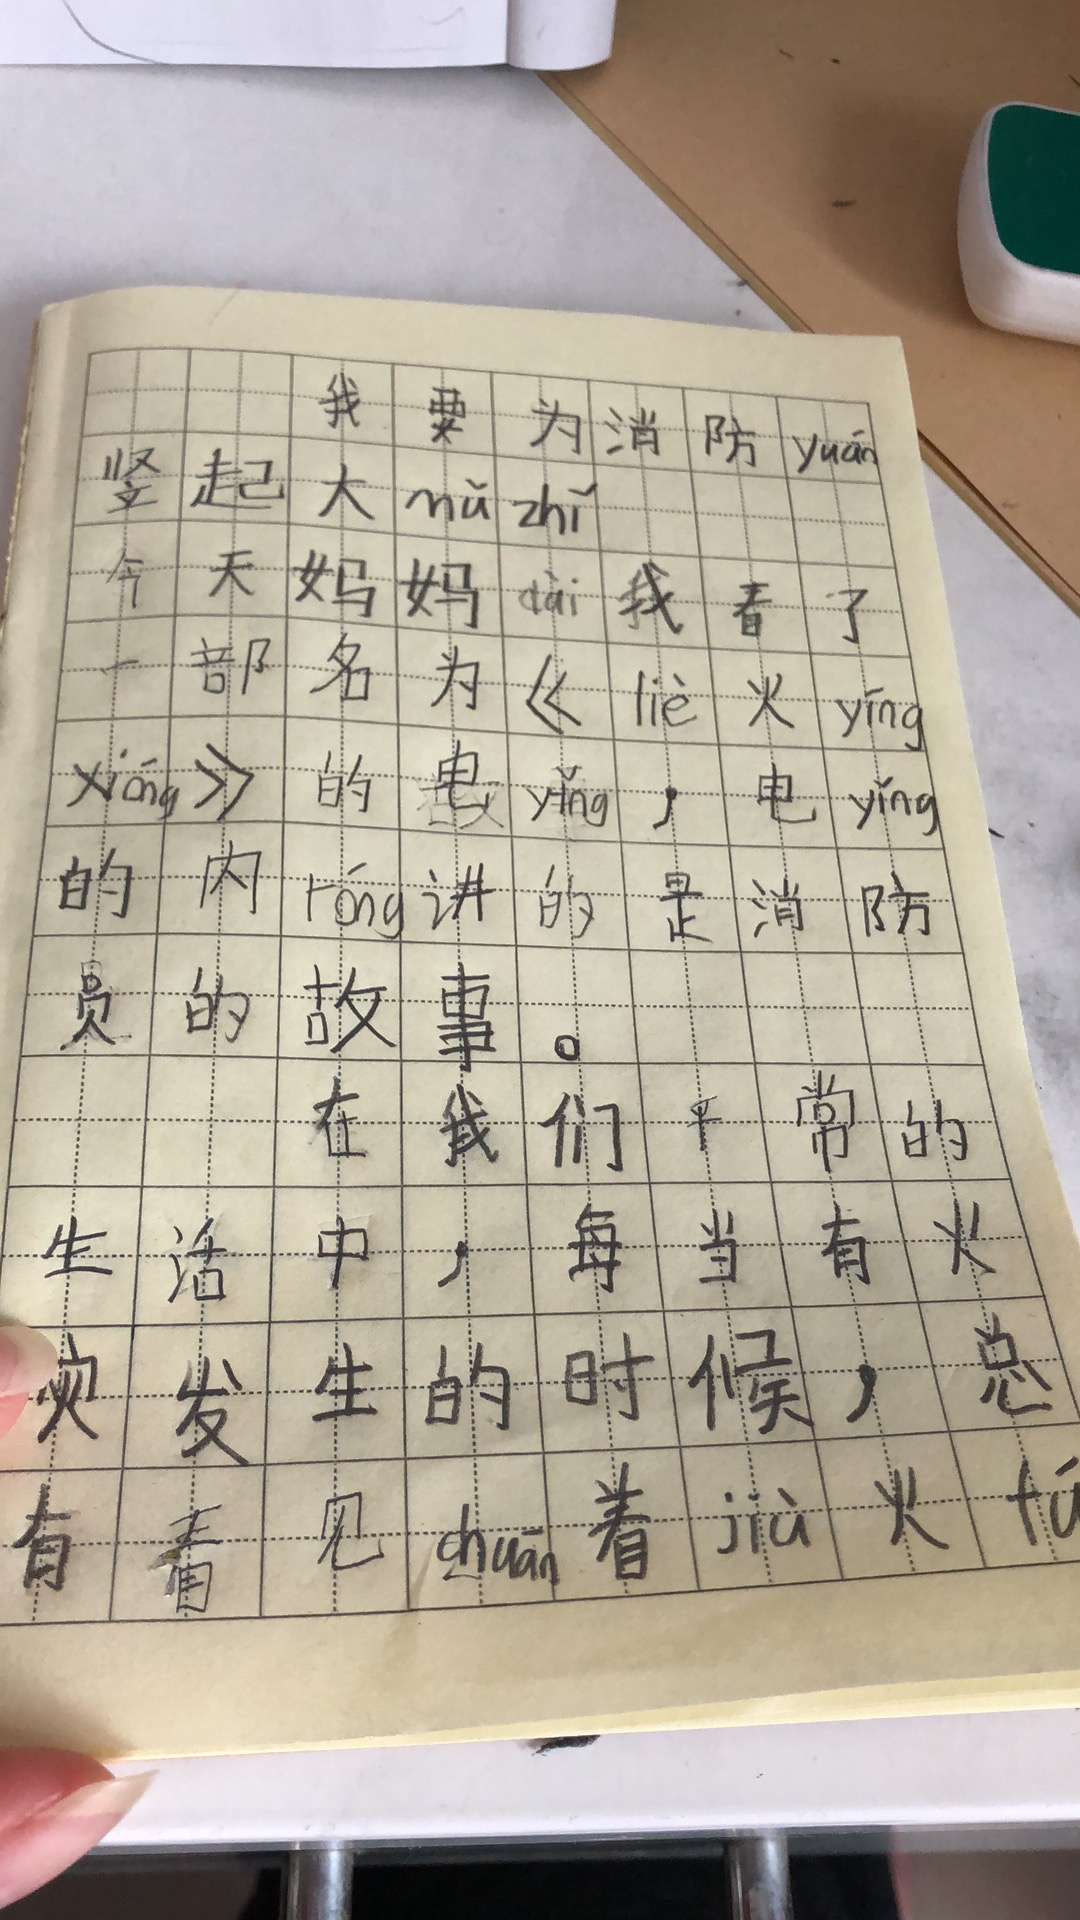 我要为消防yuán
竖起大mǔ zhǐ
今天妈妈dài我看了
一部名为《liè火yīng
xióng》的电yǐng，电yǐng
的内róng讲的是消防
员的故事。
在我们平常的
生活中，每当有火
灾发生的时候，总
有看见chuān着jiù火fú